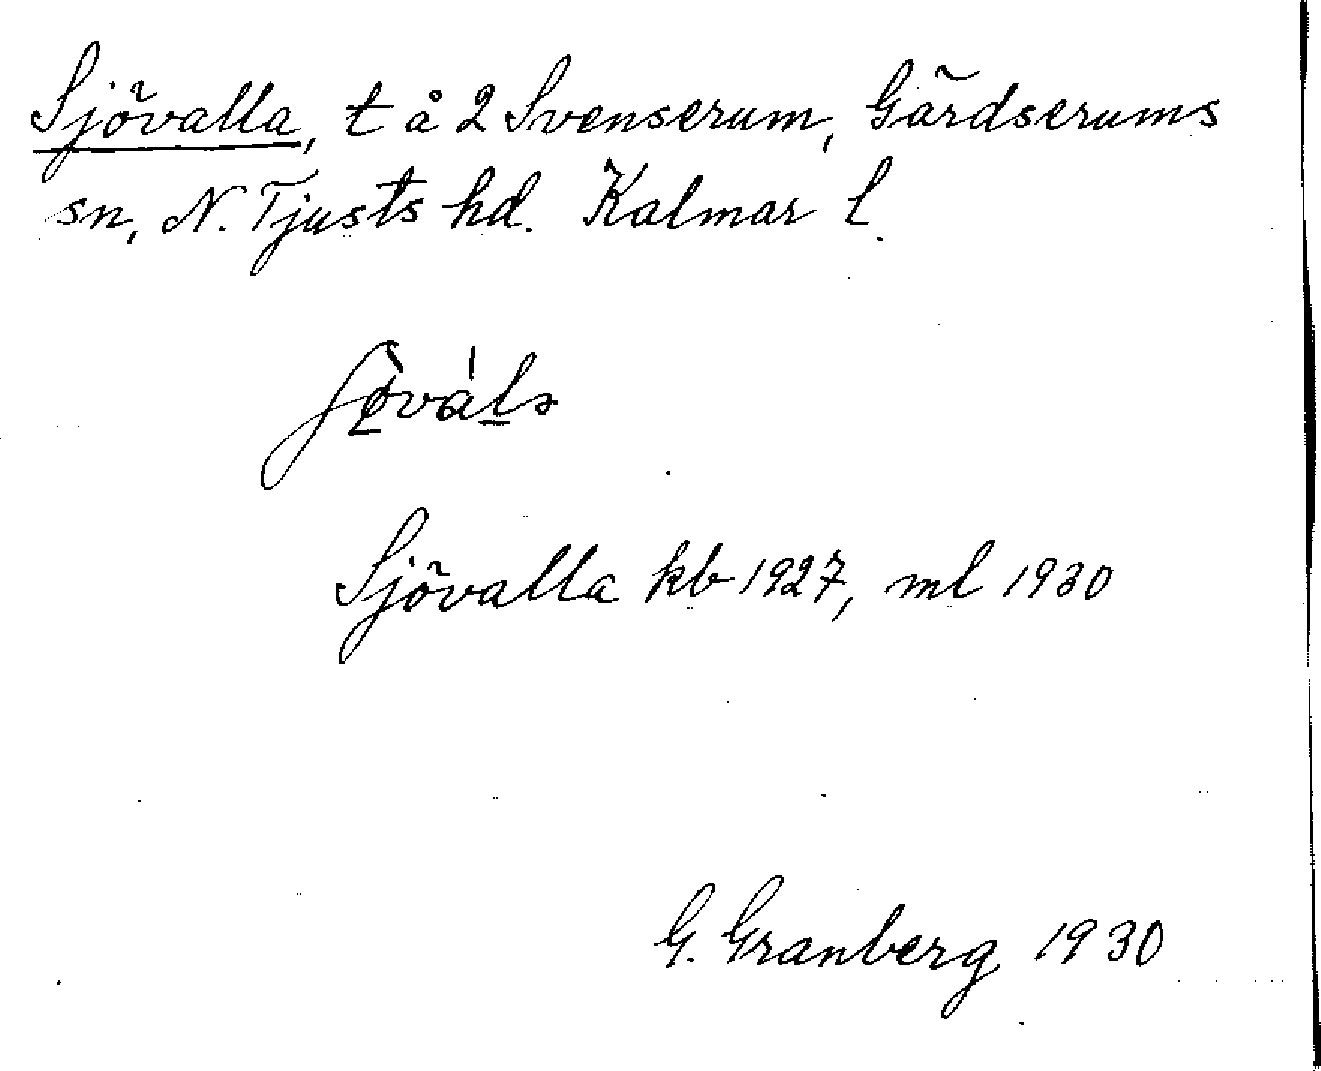 Sjövalla, t å 2 Svenserum, Gärdserums
sn, N. Tjusts hd. Kalmar l.
Sjövalla kb 1927, ml 1930
G. Granberg 1930